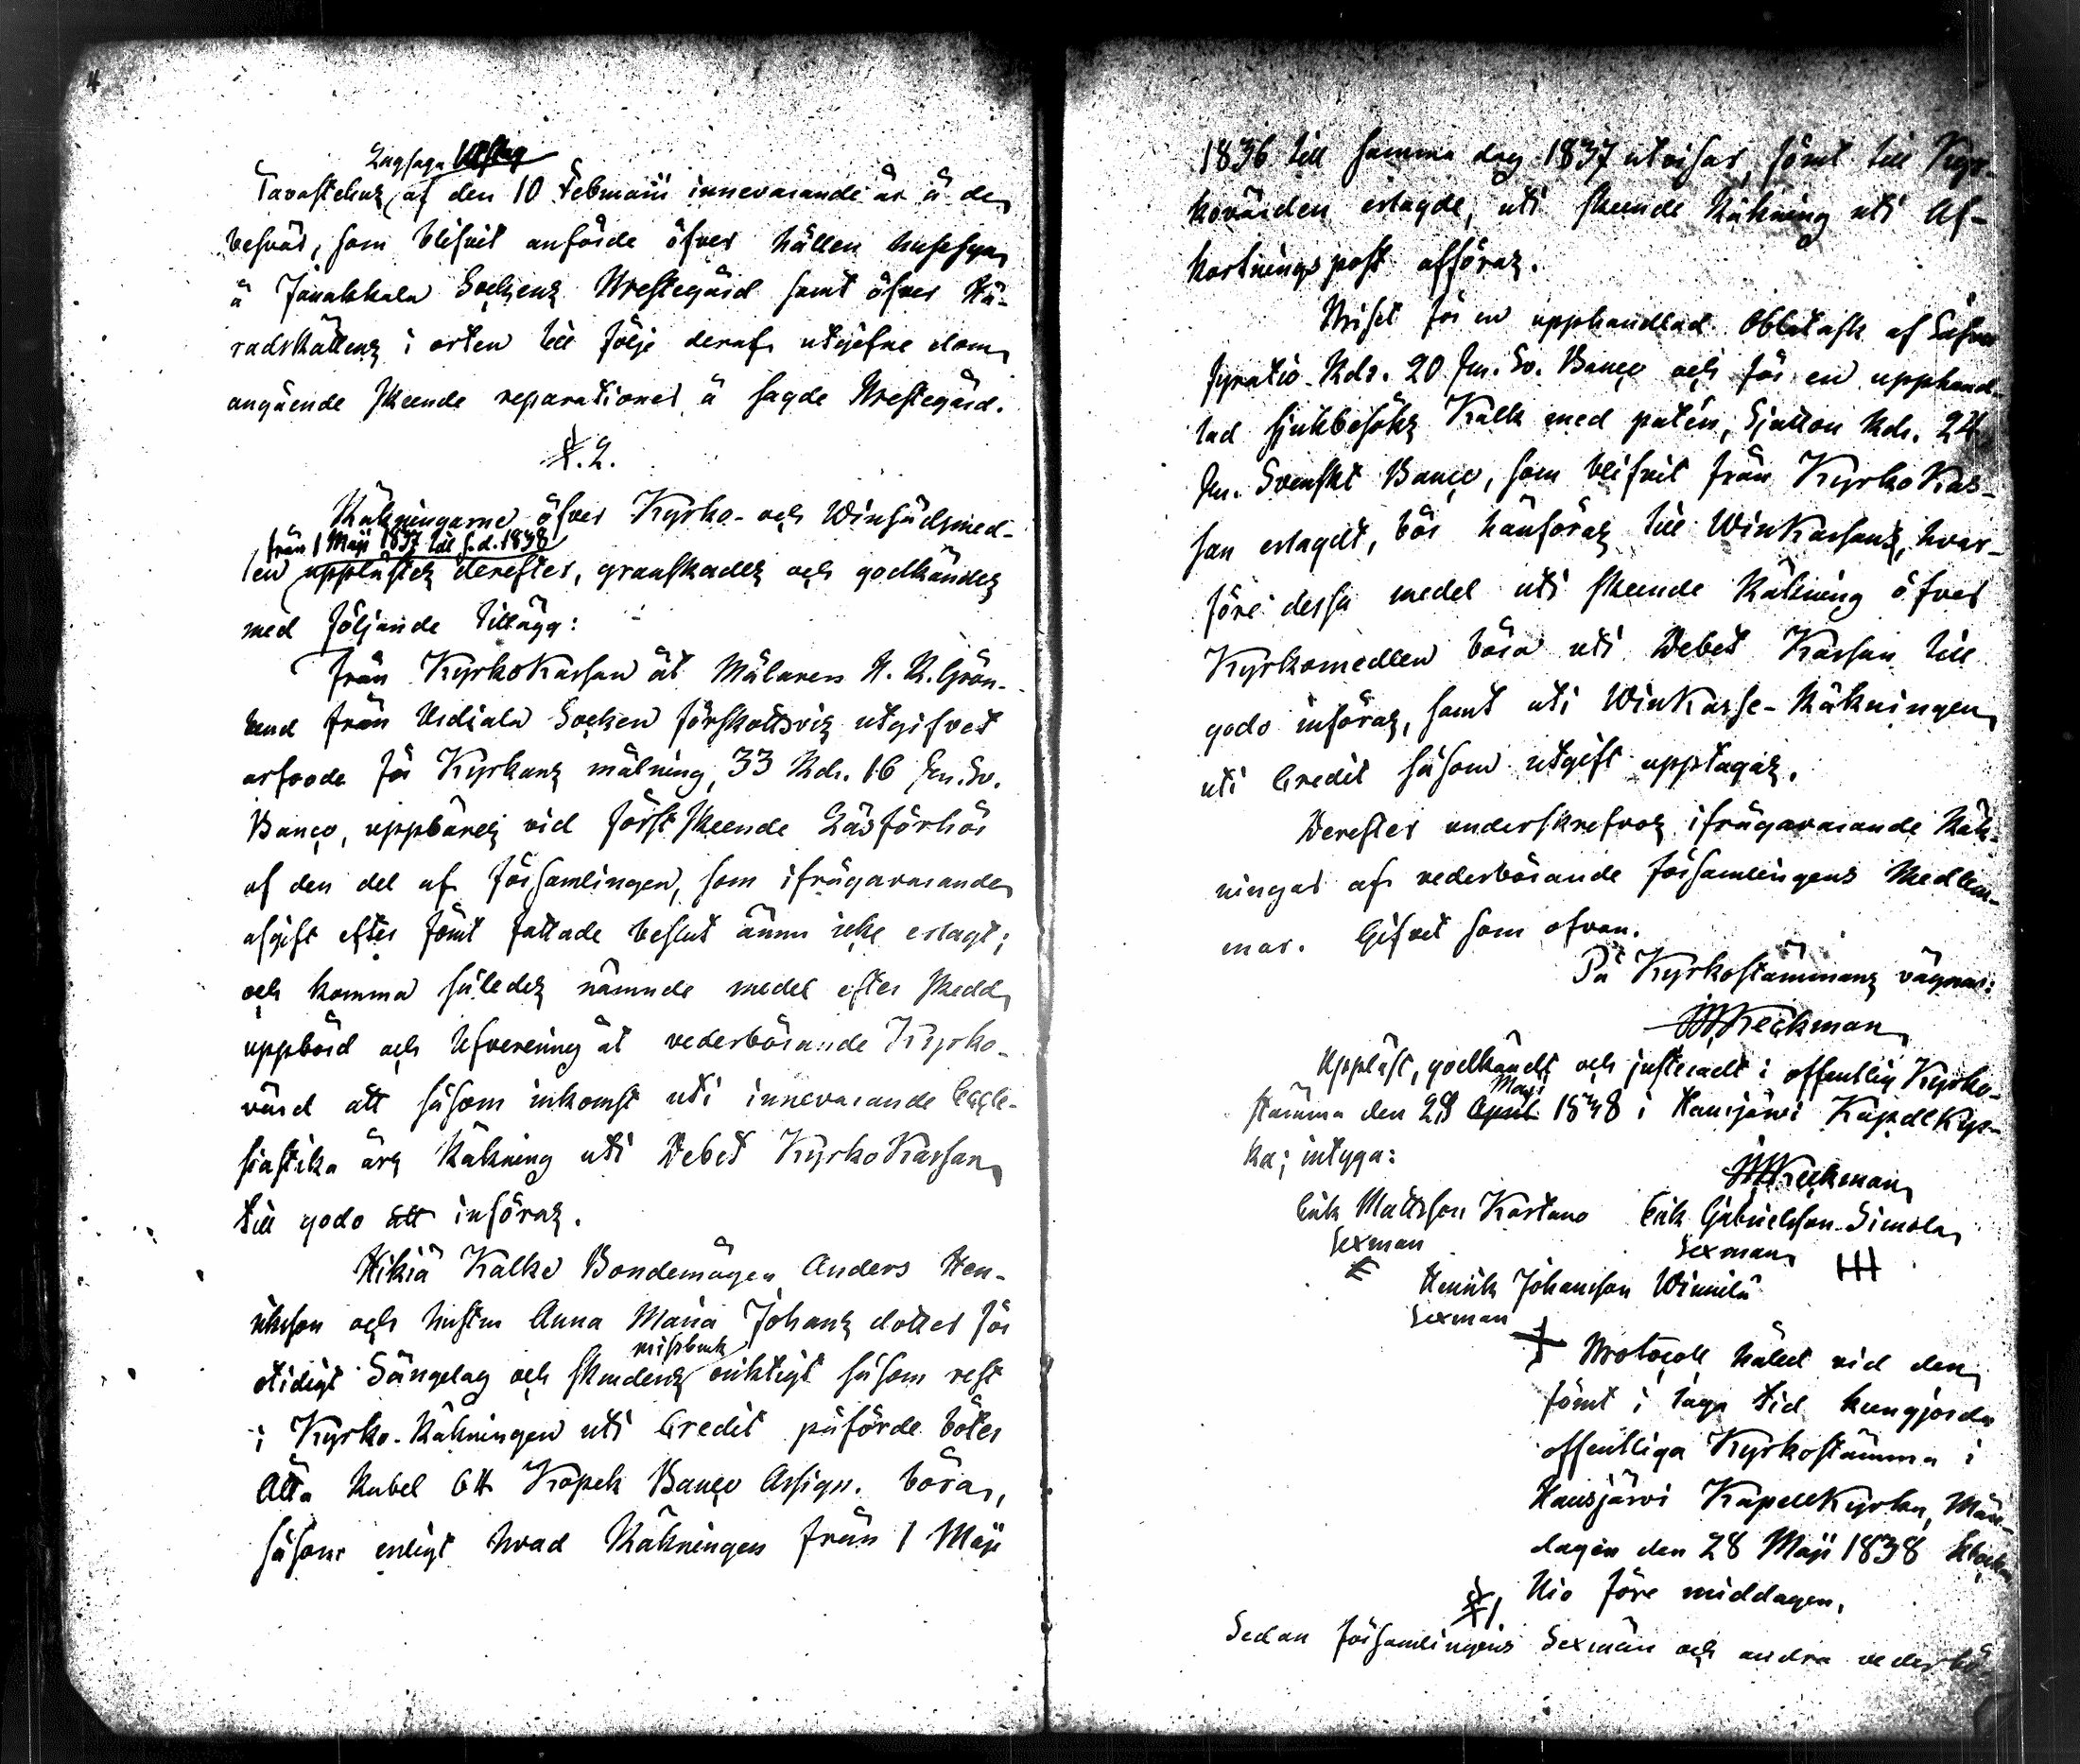 Lagsaga Utslag
Tavastehus af den 10 Februarii innevarande år å de
besvär, som blifvit anförde öfver hållen husesyn
å Janakkala Sockens Prestegård samt öfver Hä-
radsRättens i orten till följe deraf utgifne dom
angående skeende reparationer å sagde Prestegård.
§. 2.
Räkningarne öfver Kyrko- och Winsädsmed-
från 1 Maji 1837 till s.d. 1838
len upplästes derefter, granskades och godkändes
med följande tillägg:
Från KyrkoKassan åt Målaren H. R. Grön-
lund från Urdiala Socken förskottsvis utgifvet
arfvode för Kyrkans målning, 33 Rdr. 16 sk. Sv.
Banco, uppbäres vid först skeende Läsförhör
af den del af församlingen, som ifrågavarande
afgift efter förut fattade beslut ännu icke erlagt;
och komma således nämnde medel efter skedd
uppbörd och lefverering åt vederbörande Kyrko-
värd att såsom inkomst uti innevarande Eccle-
siastika års Räkning uti Debet KyrkoKassan
till godo att införas.
Hikiä Kalke Bondemågen Anders Hen-
riksson och hustru Anna Maria Johans dotter för
missbruk
otidigt Sängelag och skuldens oriktigt såsom rest
i Kyrko-Räkningen uti Credit påförde böter
Åtta Rubel 64 Kopek Banco Assign. böra,
såsom enligt hvad Räkningen från 1 Maji
1836 till samma dag 1837 utvisar, förut till Kyr-
kovärden erlagde, uti skeende Räkning uti Af-
kortningspost afföras.
Priset för en upphandlad Oblatask af Silfver
fyratio Rdr. 20 sk. Sv. Banco och för en upphand-
lad sjukbesöks Kalk med patén, Sjutton Rdr. 24
sk. Svenskt Banco, som blifvit från KyrkoKas-
san erlagdt, bör hänföras till WinKassans, hvar-
före dessa medel uti skeende Räkning öfver
Kyrkomedlen böra uti Debet Kassan till
godo införas, samt uti WinKasse-Räkningen
uti Credit såsom utgift upptagas.
Derefter underskrefvos ifrågavarande Räk-
ningar af vederbörande församlingens Medlem-
mar. Gifvet som ofvan.
På Kyrkostämmans vägnar:
Reckman
Uppläst, godkändt och justeradt i offentlig Kyrko-
Maji
stämma den 28 April 1838 i Hausjärvi KapellKyr-
ka; intyga:
Reckman
Erik Mattsson Kartano Erik Gabrielsson Simola
Sexman Sexman
Henrik Johansson Winnilä
Sexman
Protocoll hållet vid den
förut i laga tid kungjorda
offentliga Kyrkostämma i
Hausjärvi KapellKyrka, Mån-
dagen den 28 Maji 1838 klockan
Nio före middagen.
§ 1.
Sedan församlingens Sexmän och andra vederbö-